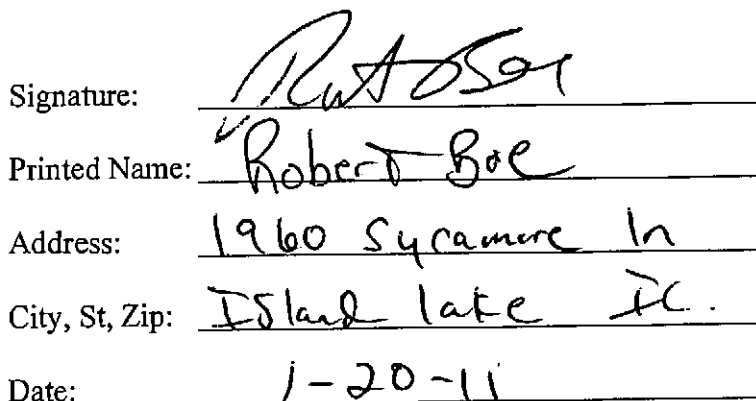 Signature:
Printed Name: Robert Boe
Address: 1960 Sycamore ln
City, St, Zip: Island lake IL.
Date: 1-20-11